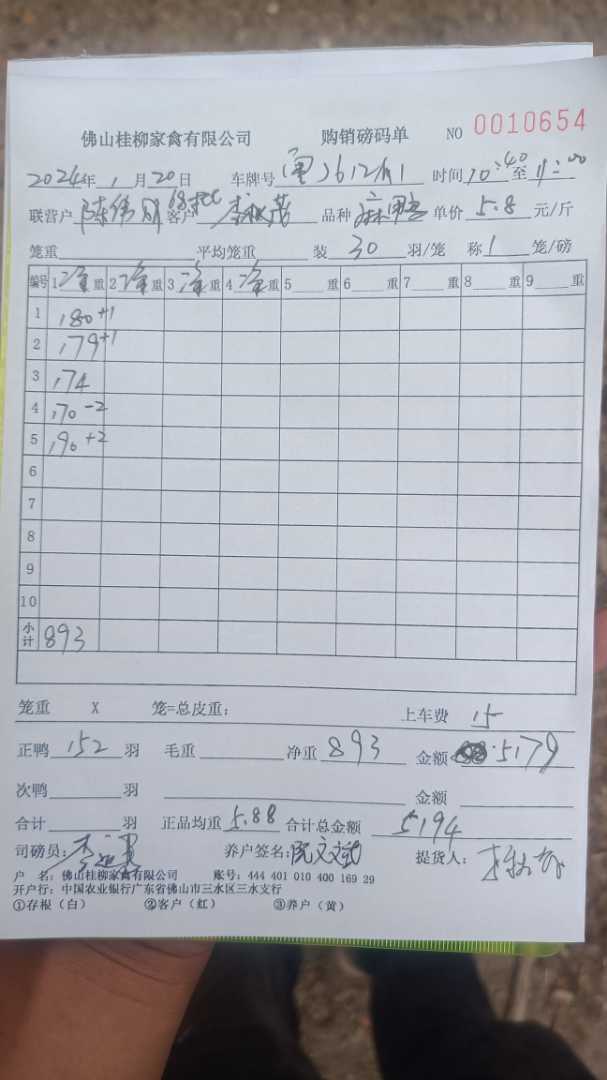 佛山桂柳家禽有限公司 购销磅码单 NO 0010654
2024年1月20日 车牌号 时间10:40至11:00
联营户 陈伟 客户 李 茂 品种 麻鸭 单价 5.8 元/斤
笼重 平均笼重 装 30 羽/笼 称 1 笼/磅
编号 1 净重 2 净重 3 净重 4 净重 5 重 6 重 7 重 8 重 9 重
1 180+1
2 179+1
3 174
4 170-2
5 190+2
6
7
8
9
10
小计 893
笼重 X 笼=总皮重: 上车费 15
正鸭 152 羽 毛重 净重 893 金额 5179
次鸭 羽 金额
合计 羽 正品均重 5.88 合计总金额 5194
司磅员: 李 养户签名: 阮文斌 提货人:
户 名: 佛山桂柳家禽有限公司 账号: 444 401 010 400 169 29
开户行: 中国农业银行广东省佛山市三水区三水支行
①存根（白） ②客户（红） ③养户（黄）